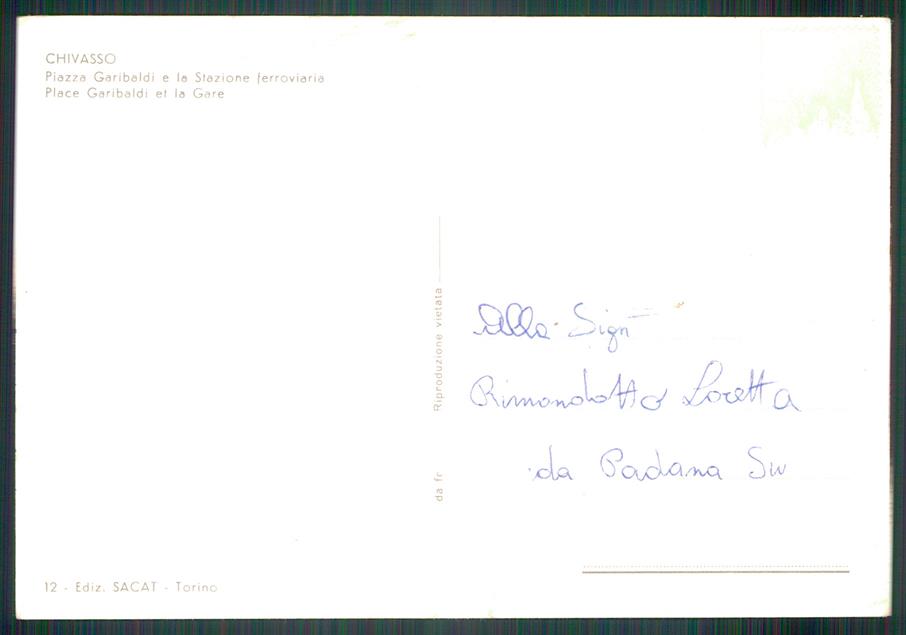 CHIVASSO
Piazza Garibaldi e la Stazione ferroviaria
Place Garibaldi et la Gare
Riproduzione vietata
da fr
Alla Sign
Loretta
da Padana
12 - Ediz. SACAT - Torino